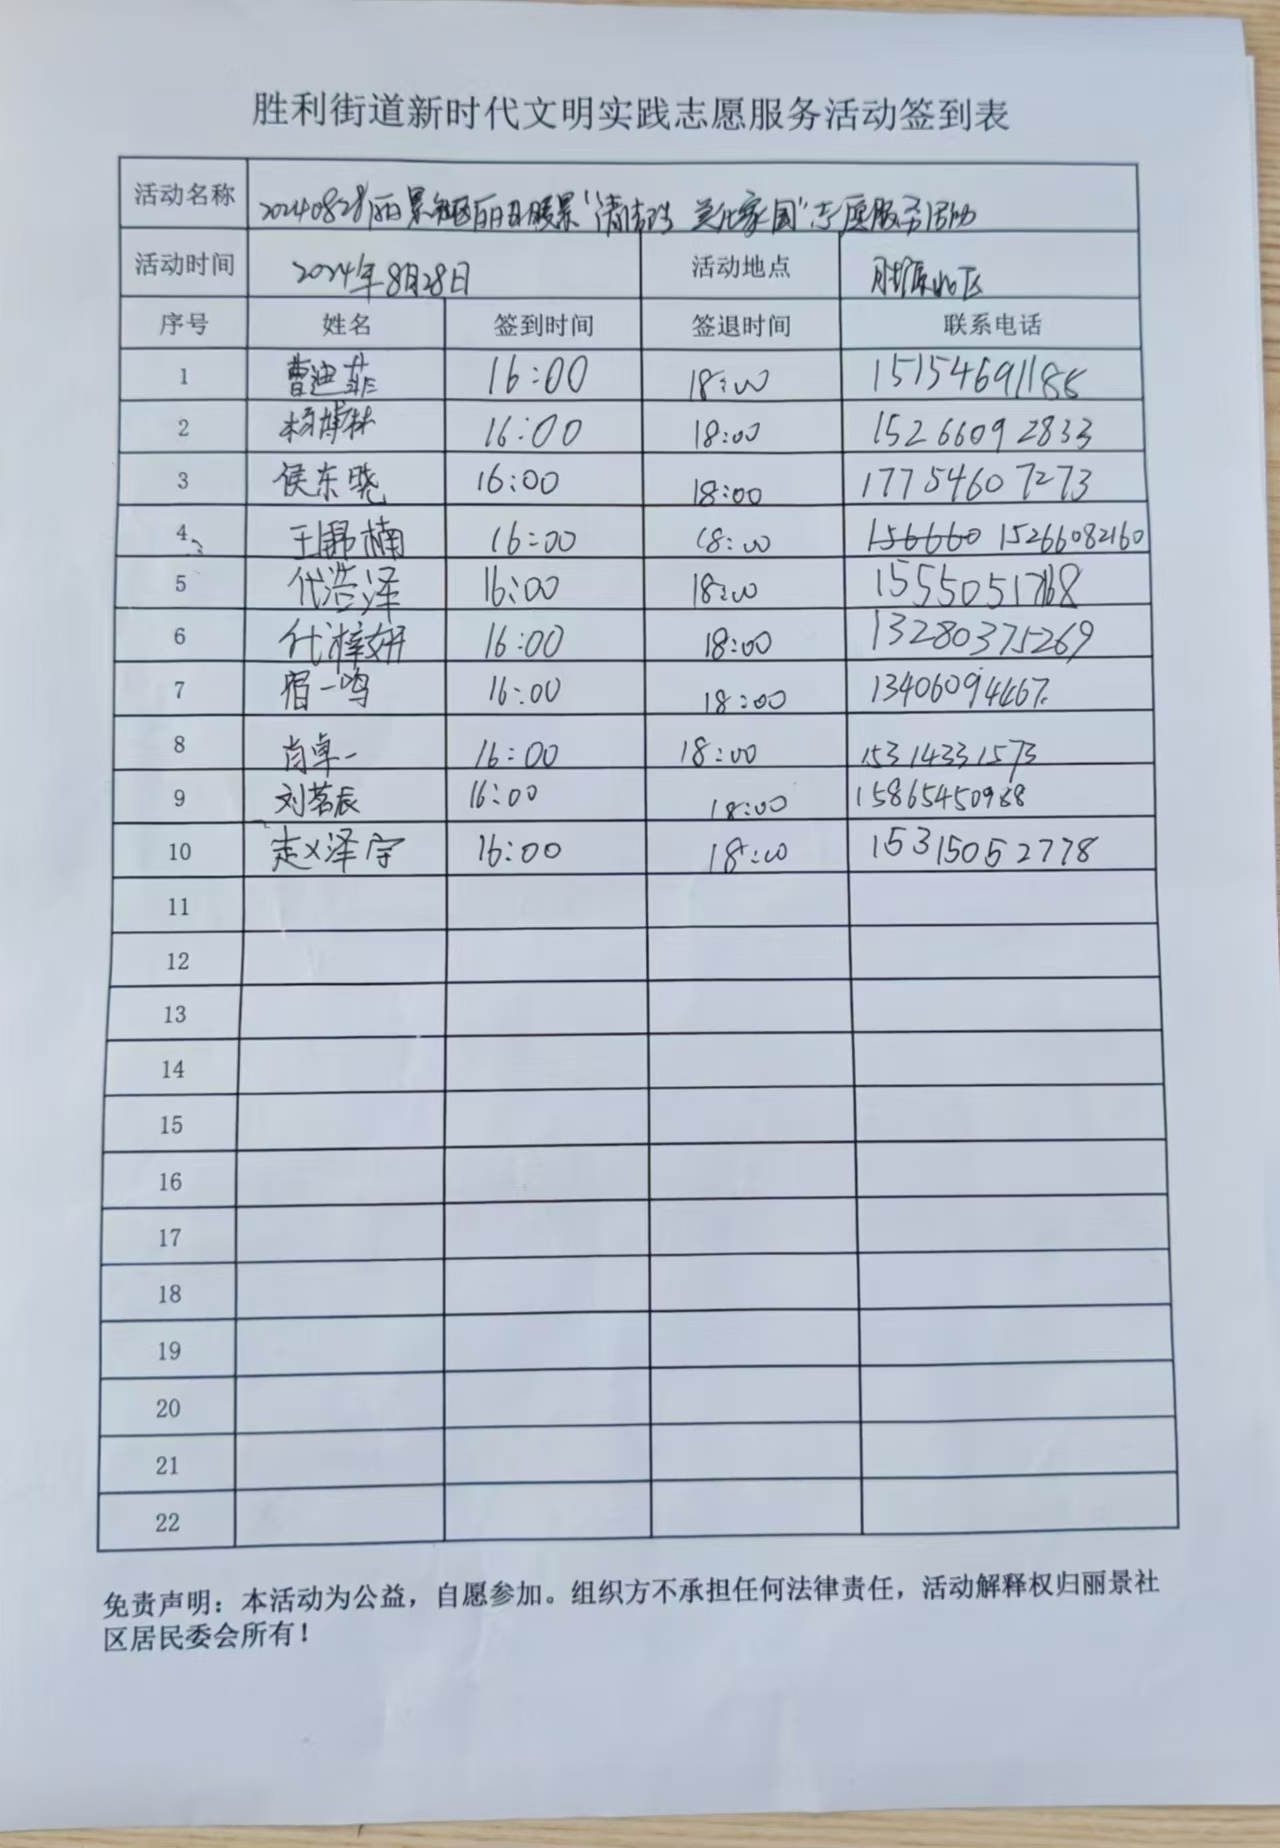 胜利街道新时代文明实践志愿服务活动签到表
活动名称 20240828丽景社区丽日暖景"清洁 美化家园"志愿服务活动
活动时间 2024年8月28日 活动地点 胜原北区
序号 姓名 签到时间 签退时间 联系电话
1 曹迪菲 16:00 18:00
2 杨博林 16:00 18:00 15266092833
3 侯东晓 16:00 18:00 17754607273
4 王昴楠 16:00 18:00 156660 15266082160
5 代浩泽 16:00 18:00
6 代梓妍 16:00 18:00 13280375269
7 宿一鸣 16:00 18:00 13406094467
8 肖卓一 16:00 18:00 15314331573
9 刘茗辰 16:00 18:00 15865450988
10 赵泽宇 16:00 18:00 15315052778
11
12
13
14
15
16
17
18
19
20
21
22
免责声明：本活动为公益，自愿参加。组织方不承担任何法律责任，活动解释权归丽景社
区居民委会所有！